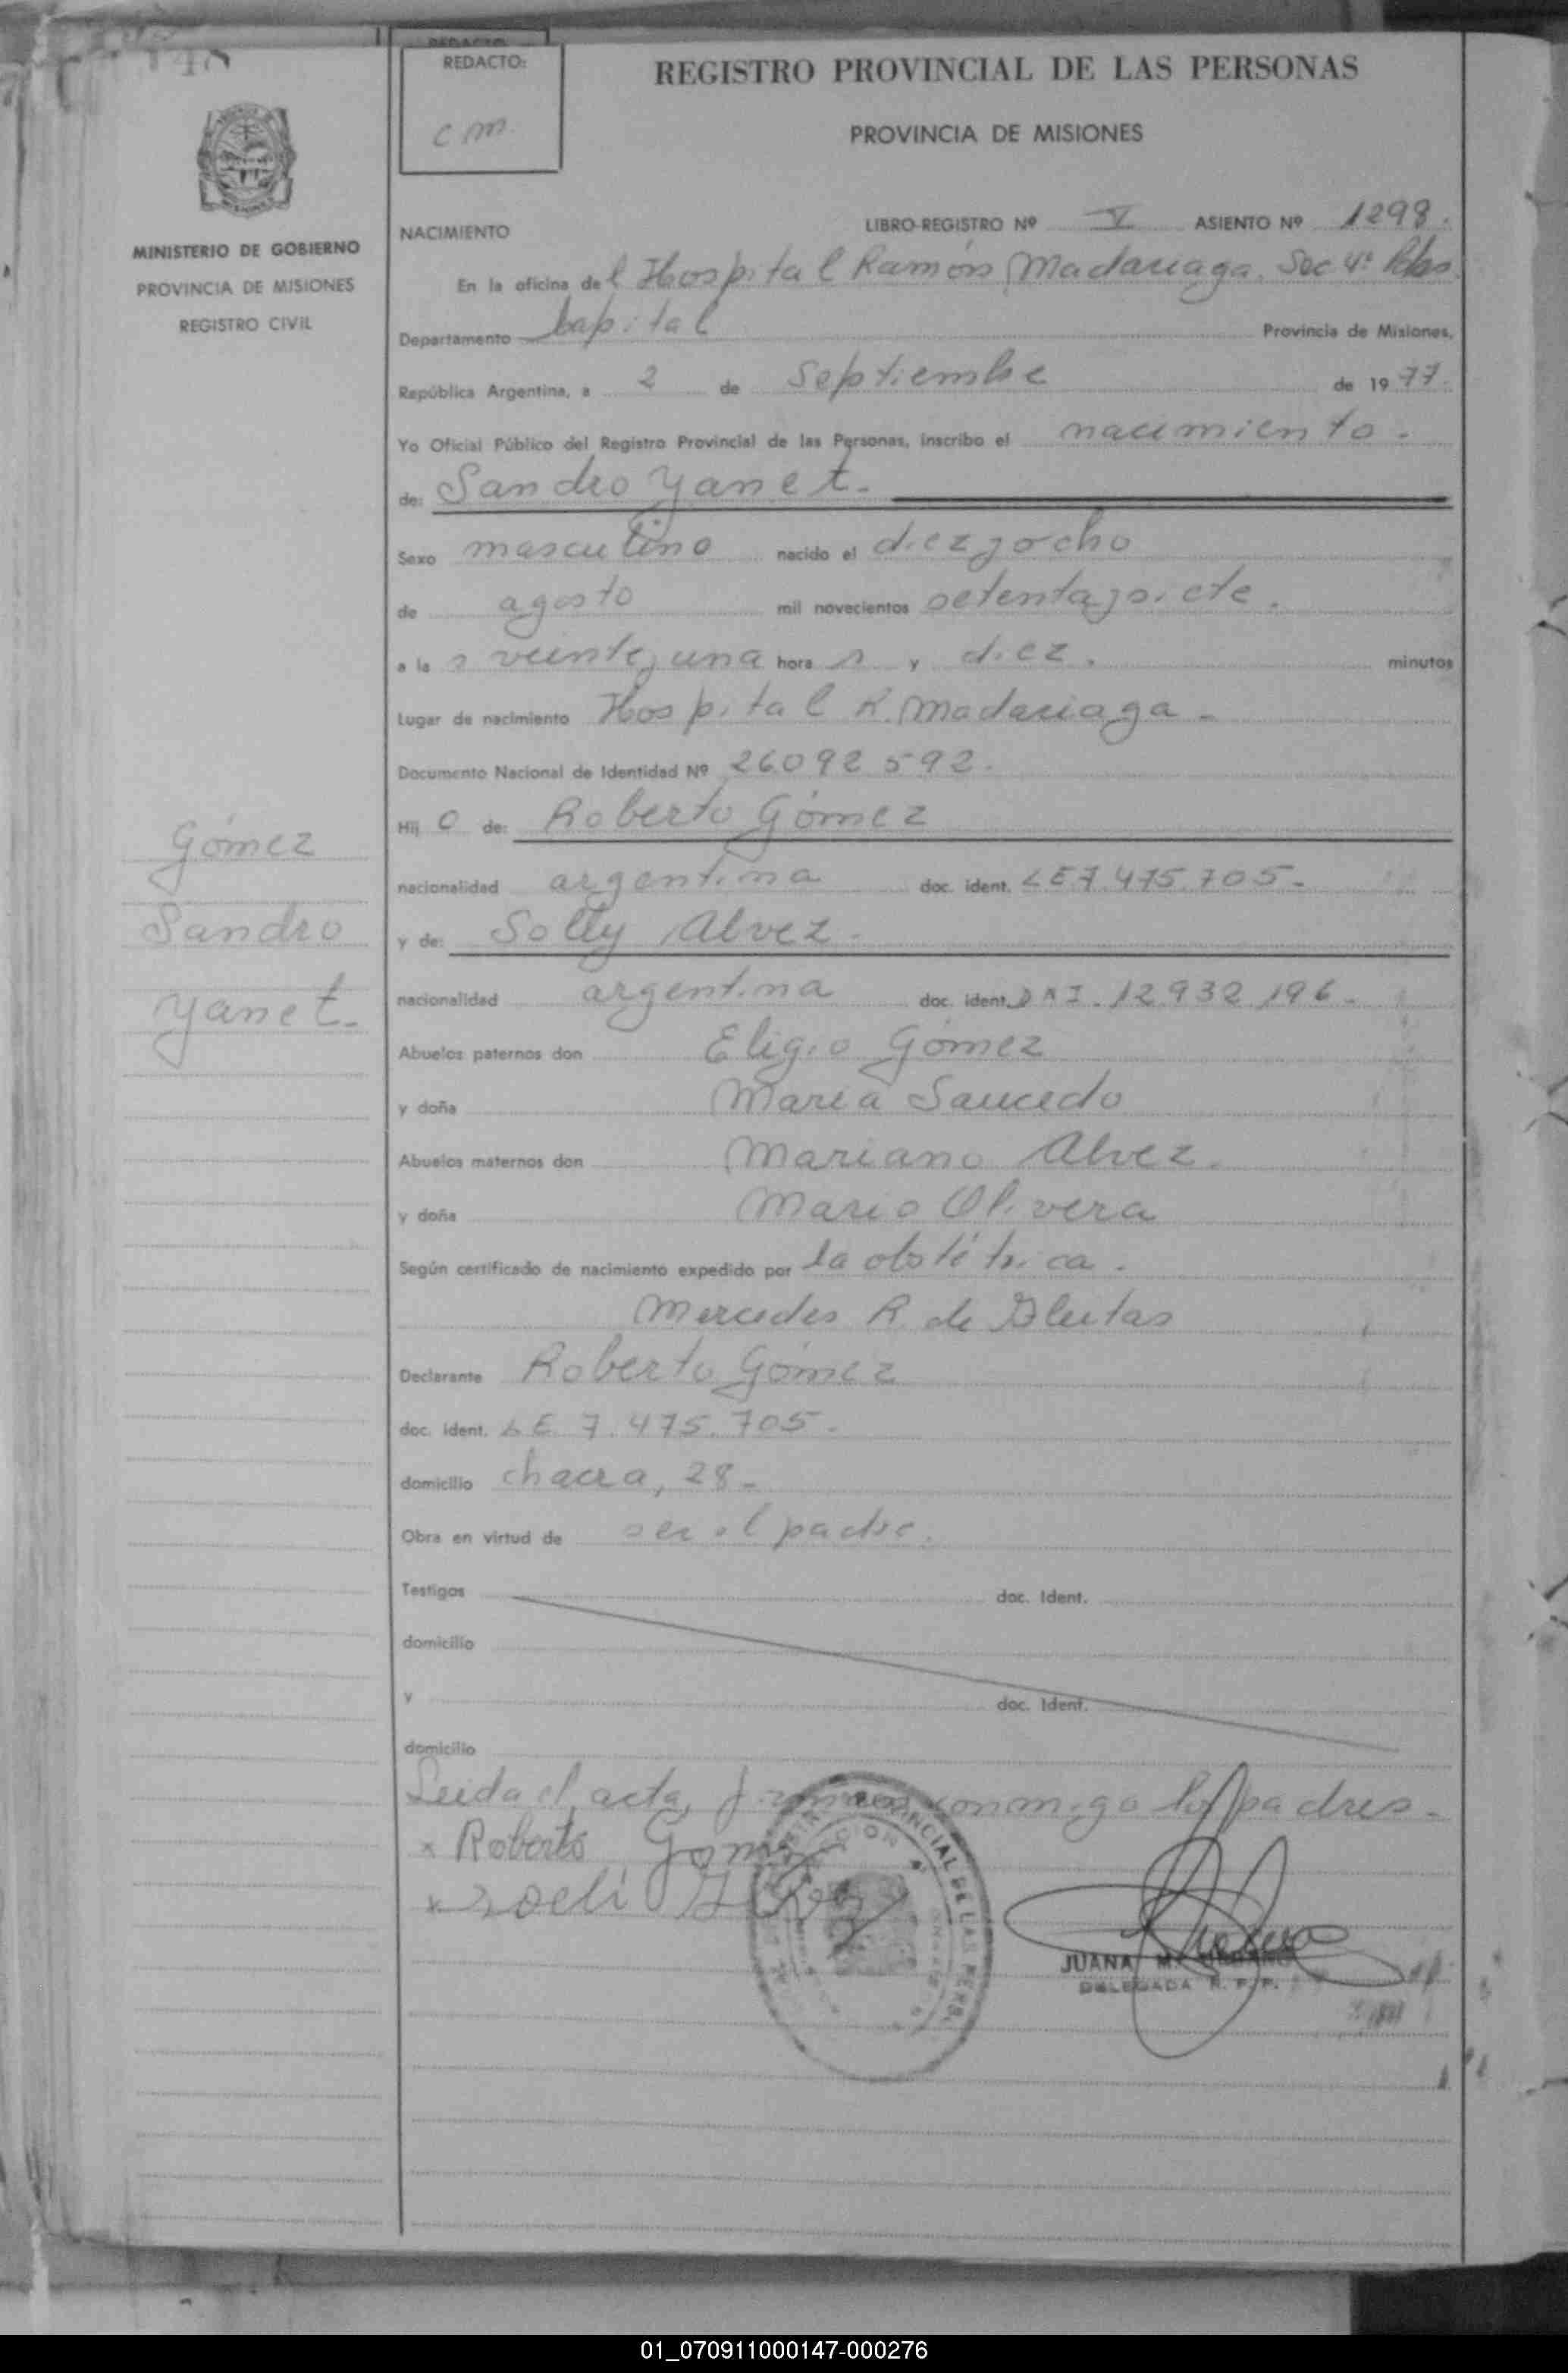 148
REDACTO:
REDACTO:
c m.
REGISTRO PROVINCIAL DE LAS PERSONAS
PROVINCIA DE MISIONES
MINISTERIO DE GOBIERNO
PROVINCIA DE MISIONES
REGISTRO CIVIL
NACIMIENTO LIBRO-REGISTRO Nº V ASIENTO Nº 1298.
En la oficina del Hospital Ramón Madariaga. Sec 4º Pdas
Departamento Capital Provincia de Misiones,
República Argentina, a 2 de Septiembre de 1977.
Yo Oficial Público del Registro Provincial de las Personas, inscribo el nacimiento.
de: Sandro Yanet.
Sexo masculino nacido el diez y ocho
de agosto mil novecientos setenta y siete.
a las veinte y una horas y diez. minutos
Lugar de nacimiento Hospital R. Madariaga -
Documento Nacional de Identidad Nº 26.092.592.
Hijo de: Roberto Gómez
nacionalidad argentina doc. ident. LE 7.475.705-
y de: Solly Alvez.
nacionalidad argentina doc. ident. DNI. 12.932.196-
Gómez
Sandro
Yanet-
Abuelos paternos don Eligio Gómez
y doña María Saucedo
Abuelos maternos don Mariano Alvez.
y doña Mario Olivera
Según certificado de nacimiento expedido por la obstétrica.
Mercedes R. de
Declarante Roberto Gómez
doc. ident. LE. 7.475.705.
domicilio chacra, 28-
Obra en virtud de ser el padre.
Testigos doc. Ident.
domicilio
y doc. Ident.
domicilio
Leida el acta, firman conmigo los padres-
x Roberto Gomez
x
REGISTRO PROVINCIAL DE LAS PERS.
JUANA M.
DELEGADA R. P. P.
01_070911000147-000276